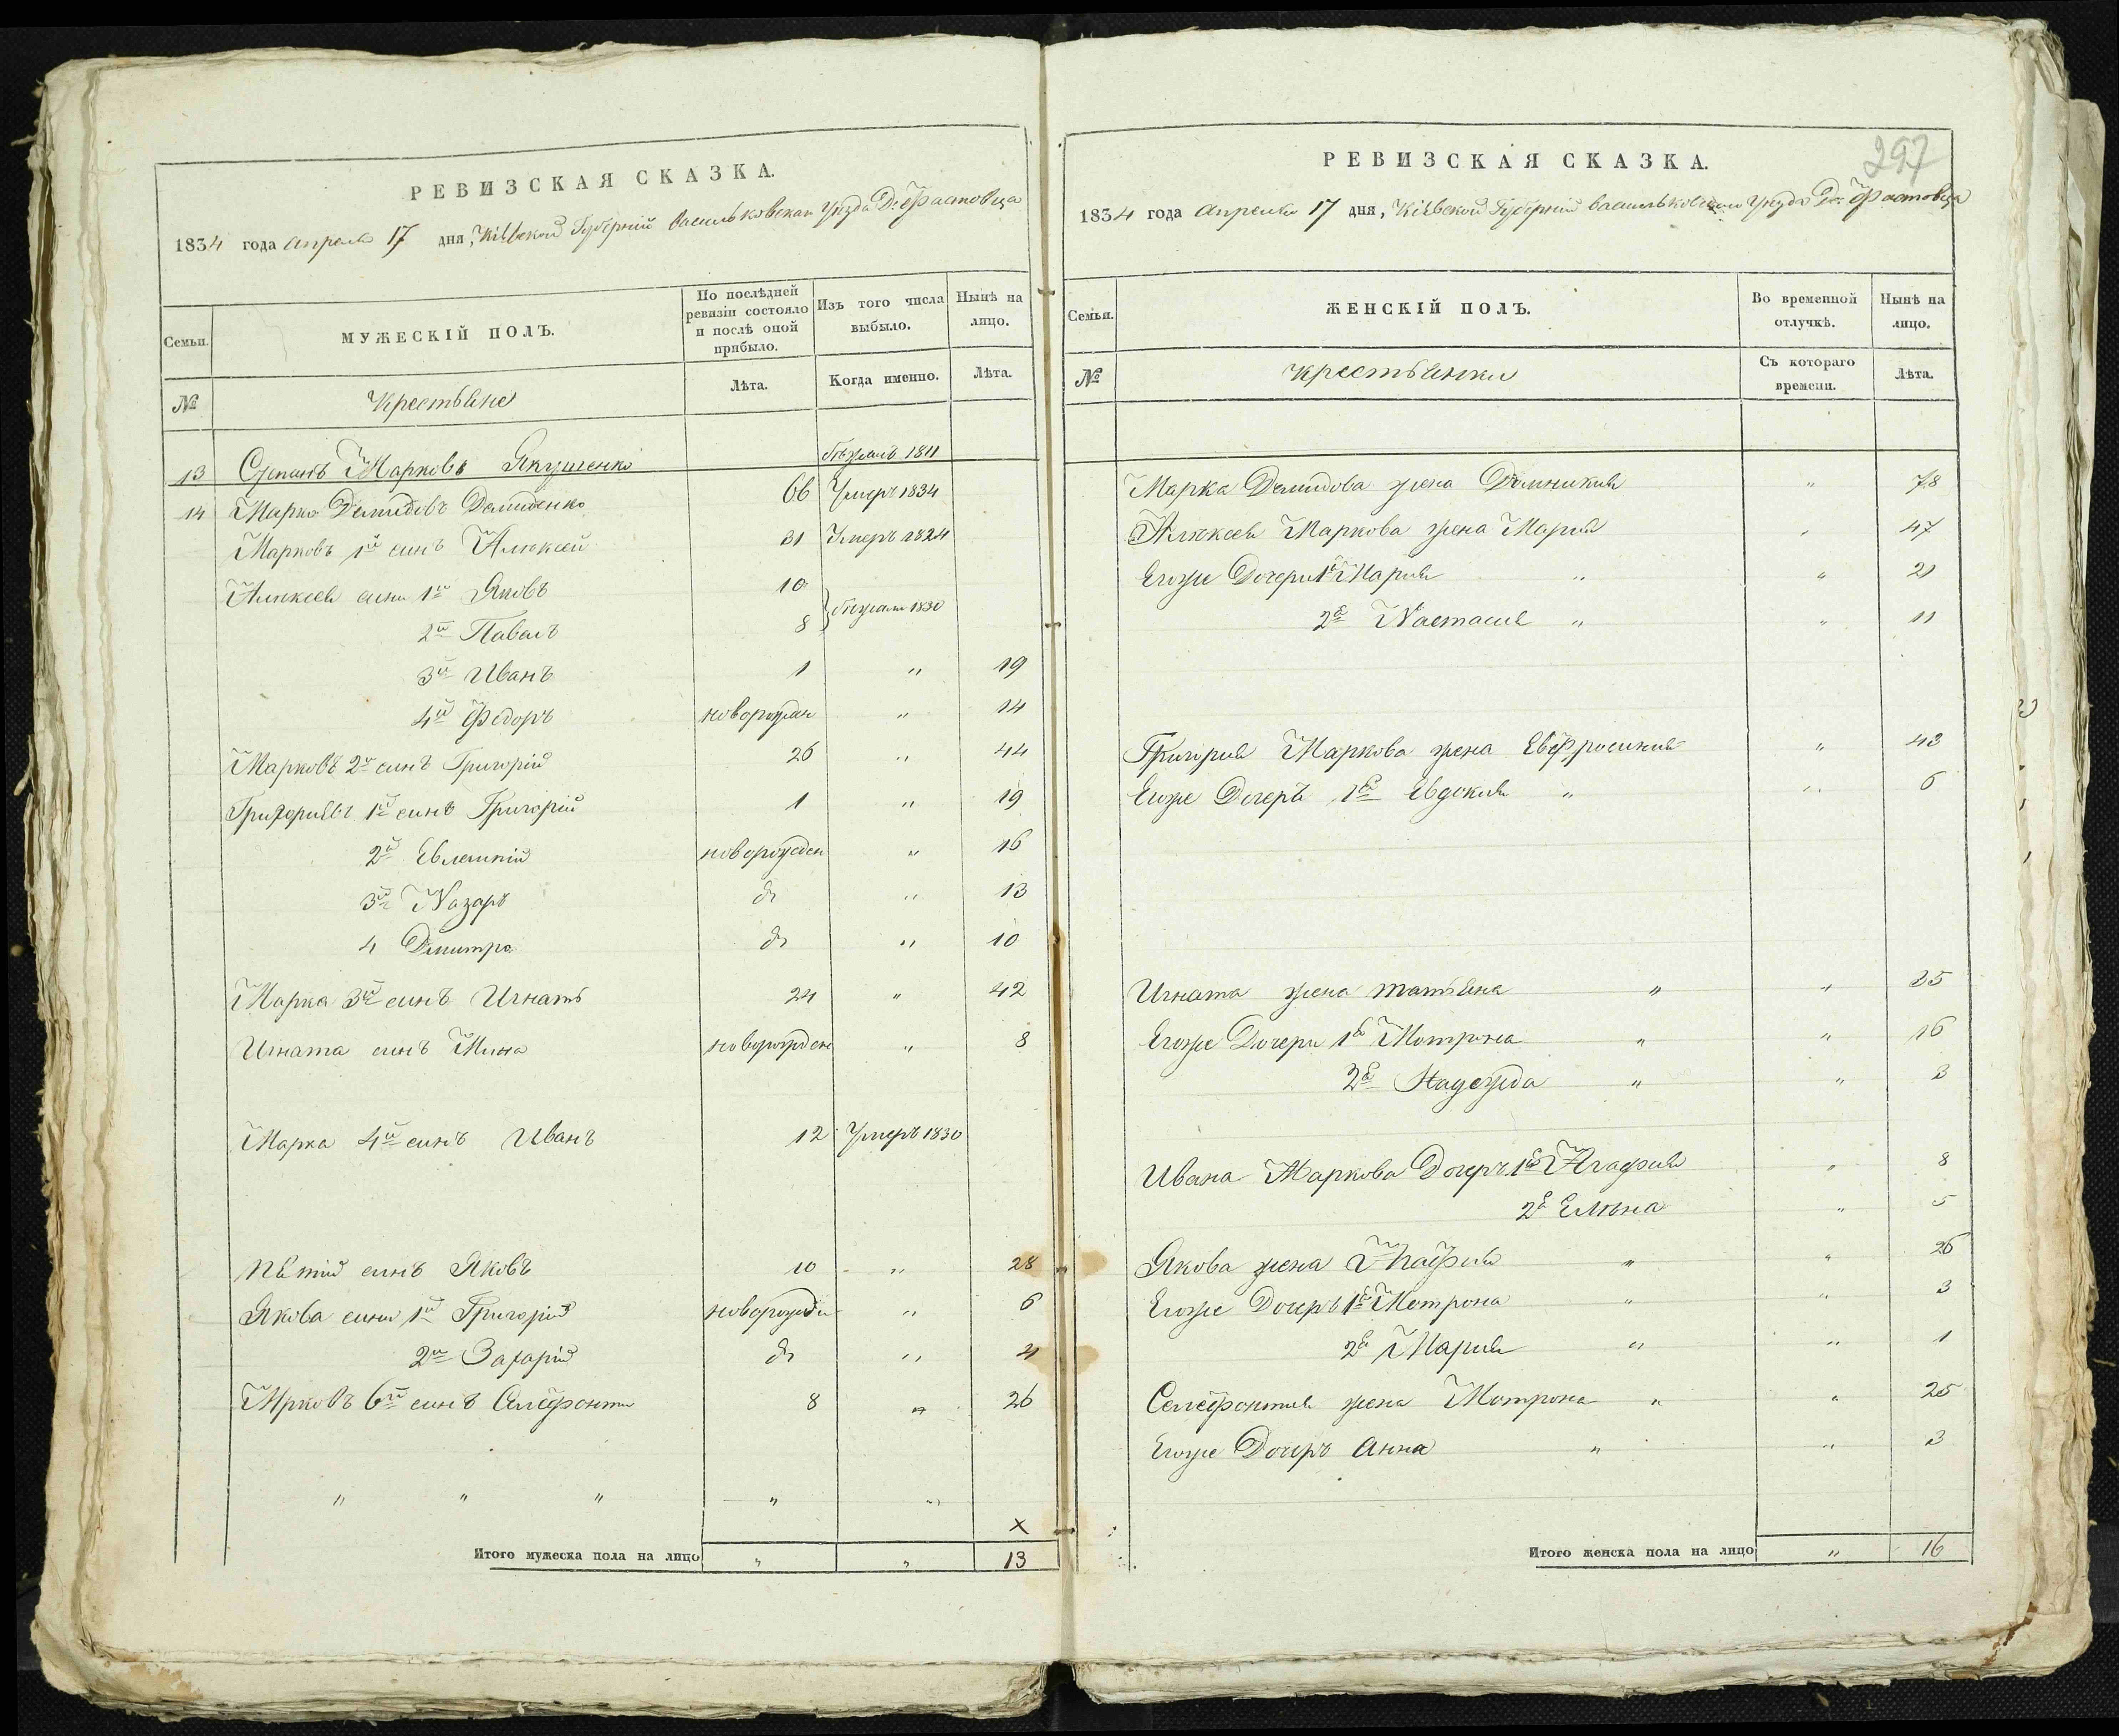 РЕВИЗСКАЯ СКАЗКА.
1834 года апреля 17 дня, Кіевской Губерніи Васильковскаго Уезда Д: Фастовца
Семьи. МУЖЕСКІЙ ПОЛЪ. По послѣдней ревизіи состояло и послѣ оной прибыло. Изъ того числа выбыло. Нынѣ на лицо.
№ Крестьяне Лѣта. Когда именно. Лѣта.
13 Степанъ Марковъ Якушенко бежалъ 1811
14 Марко Демидовъ Демиденко 66 Умеръ 1834
Марковъ 1й синъ Алексей 31 Умеръ 1824
Алексея сини 1й Яковъ 10
2й Павалъ 8 } бежали 1830
3й Иванъ 1 " 19
4й Федоръ новорожден " 14
Марковъ 2й синъ Григорій 26 " 44
Григориевъ 1й синъ Григорій 1 " 19
2й Евлампій новорожден " 16
3й Назаръ до " 13
4 Дмитро до " 10
Марка 3й синъ Игнатъ 24 " 42
Игната синъ Мина новорожден " 8
Марка 4й синъ Иванъ 12 Умеръ 1830
Пятий синъ Яковъ 10 " 28
Якова сини 1й Григорій новорожден " 6
2й Захарій до " 4
Мрковъ 6й синъ Селефонти 8 " 26
" " " " "
×
Итого мужеска пола на лицо " " 13
297
РЕВИЗСКАЯ СКАЗКА.
1834 года апреля 17 дня, Кіевской Губерніи Васильковскаго Уезда Д: Фастовца
Семьи. ЖЕНСКІЙ ПОЛЪ. Во временной отлучкѣ. Нынѣ на лицо.
№ Крестьянки Съ котораго времени. Лѣта.
Марка Демидова жена Домникия " 78
Алексея Маркова жена Мария " 47
Егоже Дочери 1я Мария " " 21
2я Настасия " " 11
Григория Маркова жена Евфросиния " 43
Егоже Дочеръ 1я Евдокия " " 6
Игната жена татьяна " " 35
Егоже Дочери 1я Мотрона " " 16
2я Надежда " " 3
Ивана Маркова Дочеръ 1я Агафия " 8
2я Елена " 5
Якова жена Агафия " " 26
Егоже Дочеръ 1я Мотрона " " 3
2я Мария " " 1
Селефонтия жена Мотрона " " 25
Егоже Дочеръ Анна " " 3
Итого женска пола на лицо " 16